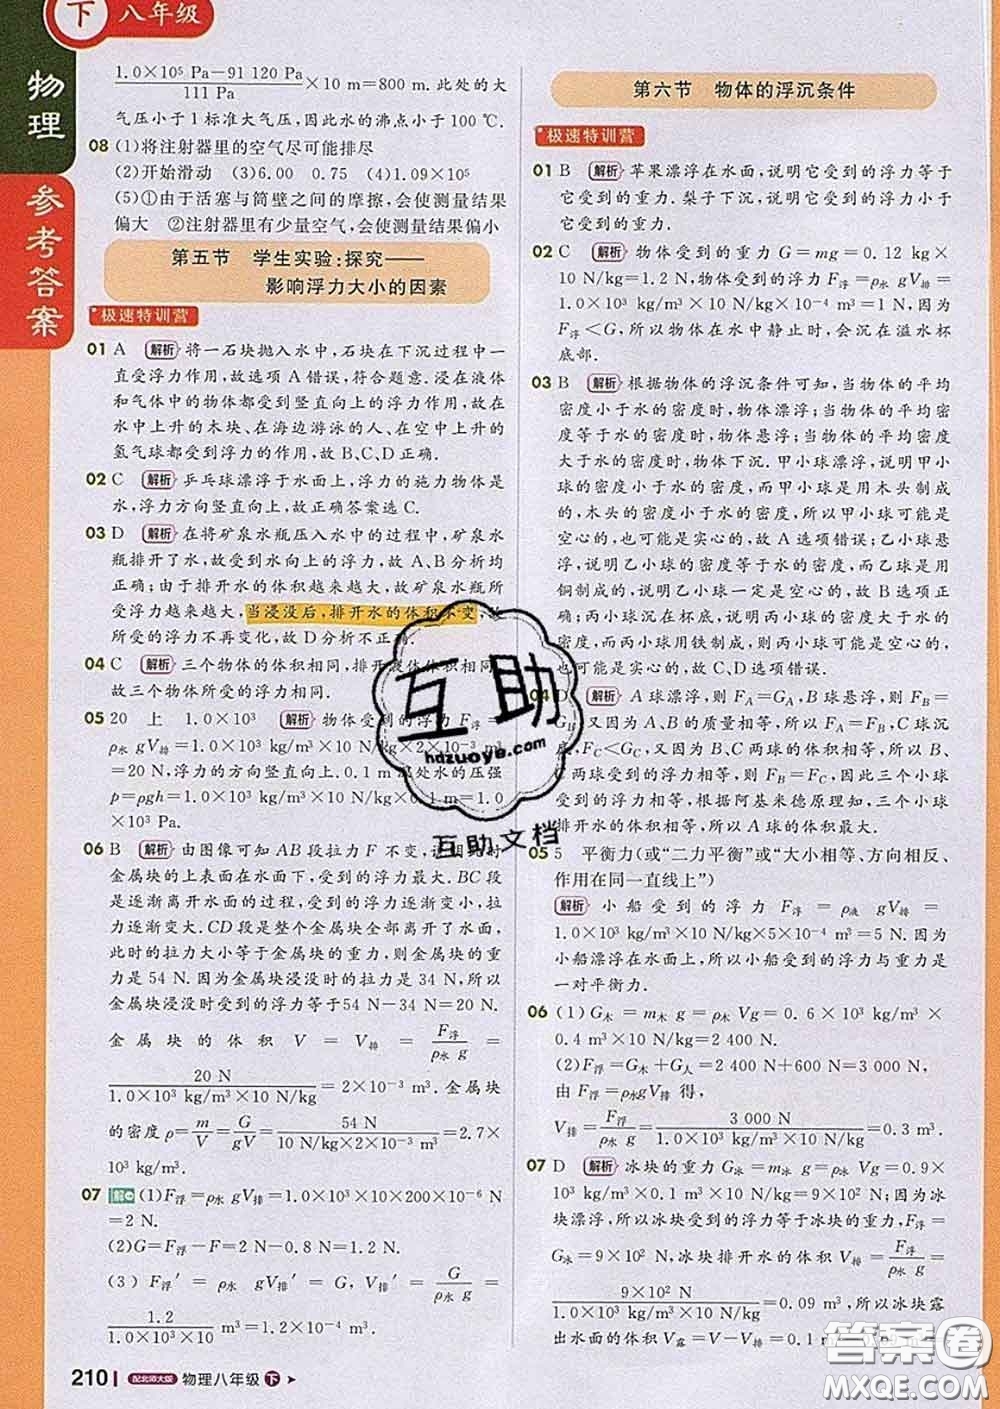 下 八年级
物理
参考答案
1.0×10⁵ Pa−91 120 Pa
111 Pa
×10 m=800 m. 此处的大
气压小于1标准大气压,因此水的沸点小于100 ℃.
08 (1)将注射器里的空气尽可能排尽
(2)开始滑动 (3)6.00 0.75 (4)1.09×10⁵
(5)①由于活塞与筒壁之间的摩擦,会使测量结果
偏大 ②注射器里有少量空气,会使测量结果偏小
第五节 学生实验:探究——
影响浮力大小的因素
极速特训营
01 A 解析 将一石块抛入水中,石块在下沉过程中一
直受浮力作用,故选项A错误,符合题意.浸在液体
和气体中的物体都受到竖直向上的浮力作用,故在
水中上升的木块、在海边游泳的人、在空中上升的
氢气球都受到浮力的作用,故B、C、D正确.
02 C 解析 乒乓球漂浮于水面上,浮力的施力物体是
水,浮力方向竖直向上,故正确答案选C.
03 D 解析 在将矿泉水瓶压入水中的过程中,矿泉水
瓶排开了水,故受到水向上的浮力,故A、B分析均
正确;由于排开水的体积越来越大,故矿泉水瓶所
受浮力越来越大,当浸没后,排开水的体积不变,
所受的浮力不再变化,故D分析不正确.
04 C 解析 三个物体的体积相同,排开液体体积相同,
故三个物体所受的浮力相同.
05 20 上 1.0×10³ 解析 物体受到的浮力F浮=
ρ水 gV排=1.0×10³ kg/m³×10 N/kg×2×10⁻³ m³
=20 N,浮力的方向竖直向上.0.1 m深处水的压强
p=ρgh=1.0×10³ kg/m³×10 N/kg×0.1 m=1.0
×10³ Pa.
06 B 解析 由图像可知AB段拉力F不变,说明此时
金属块的上表面在水面以下,受到的浮力最大.BC段
是逐渐离开水面的过程,受到的浮力逐渐变小,拉
力逐渐变大.CD段是整个金属块全部离开了水面,
此时的拉力大小等于金属块的重力,所以金属块的
重力是54 N.因为金属块浸没时的拉力是34 N,所以
金属块浸没时受到的浮力等于54 N−34 N=20 N.
金属块的体积 V = V排 = F浮/(ρ水 g) =
20 N/(1.0×10³ kg/m³×10 N/kg) = 2×10⁻³ m³.金属块
的密度ρ=m/V=G/(gV)=54 N/(10 N/kg×2×10⁻³ m³)=2.7×
10³ kg/m³.
07 解 (1)F浮=ρ水 gV排=1.0×10³×10×200×10⁻⁶ N
=2 N.
(2)G=F浮−F=2 N−0.8 N=1.2 N.
(3) F浮′ = ρ水 gV排′ = G, V排′ = G/(ρ水 g) =
1.2/(1.0×10³×10) m³=1.2×10⁻⁴ m³.
210 配北师大版 物理八年级 下
第六节 物体的浮沉条件
极速特训营
01 B 解析 苹果漂浮在水面,说明它受到的浮力等于
它受到的重力.梨子沉入水底,说明它受到的浮力小于
它受到的重力.
02 C 解析 物体受到的重力G=mg=0.12 kg×
10 N/kg=1.2 N,物体受到的浮力F浮=ρ水 gV排=
1.0×10³ kg/m³×10 N/kg×10⁻⁴ m³=1 N,因为
F浮<G,所以物体在水中静止时,会沉在溢水杯
底部.
03 B 解析 根据物体的浮沉条件可知,当物体的平均
密度小于水的密度时,物体漂浮;当物体的平均密度
等于水的密度时,物体悬浮;当物体的平均密度
大于水的密度时,物体下沉.甲小球漂浮,说明甲小球
的密度小于水的密度,而甲小球是用木头制成
的,木头的密度小于水的密度,所以甲小球可能是
空心的,也可能是实心的,故A选项错误;乙小球悬
浮,说明乙小球的密度等于水的密度,而乙小球是用
铜制成的,所以乙小球一定是空心的,故B选项正
确;丙小球沉在杯底,说明丙小球的密度大于水的
密度,而丙小球用铁制成,则丙小球可能是空心的,
也可能是实心的,故C、D选项错误.
04 D 解析 A球漂浮,则FA=GA,B球悬浮,则FB=
GB,又因为A、B的质量相等,所以FA=FB,C球沉
底,FC<GC,又因为B、C两球的质量相等,所以B、
C两球受到的浮力FB>FC,因此三个小球
受到的浮力大小相等,根据阿基米德原理知,三个小球
排开水的体积相等,所以A球的体积最大.
05 5 平衡力(或“二力平衡”或“大小相等、方向相反、
作用在同一直线上”)
解析 小船受到的浮力 F浮 = ρ液 gV排 =
1.0×10³ kg/m³×10 N/kg×5×10⁻⁴ m³=5 N.因为
小船漂浮在水中,所以小船所受的浮力与重力是
一对平衡力.
06 (1)G木=m木 g=ρ木 Vg=0.6×10³ kg/m³×
0.4 m³×10 N/kg=2 400 N.
(2)F浮=G木+G人=2 400 N+600 N=3 000 N,
由 F浮=ρ水gV排 得,
V排=F浮/(ρ水 g)=3 000 N/(1.0×10³ kg/m³×10 N/kg)=0.3 m³.
07 D 解析 冰块的重力G冰=m冰 g=ρ冰 gV冰=0.9×
10³ kg/m³×0.1 m³×10 N/kg=9×10² N,因为冰
块漂浮,所以冰块受到的浮力等于冰块的重力,F浮=
G冰=9×10² N;冰块排开水的体积V排=F浮/(ρ水 g)=
9×10² N/(1.0×10³ kg/m³×10 N/kg)=0.09 m³,所以冰块露
出水面的体积V露=V冰−V排=0.1 m³
互助
hdzuoye.com
互助文档
答案卷
MXQE.COM